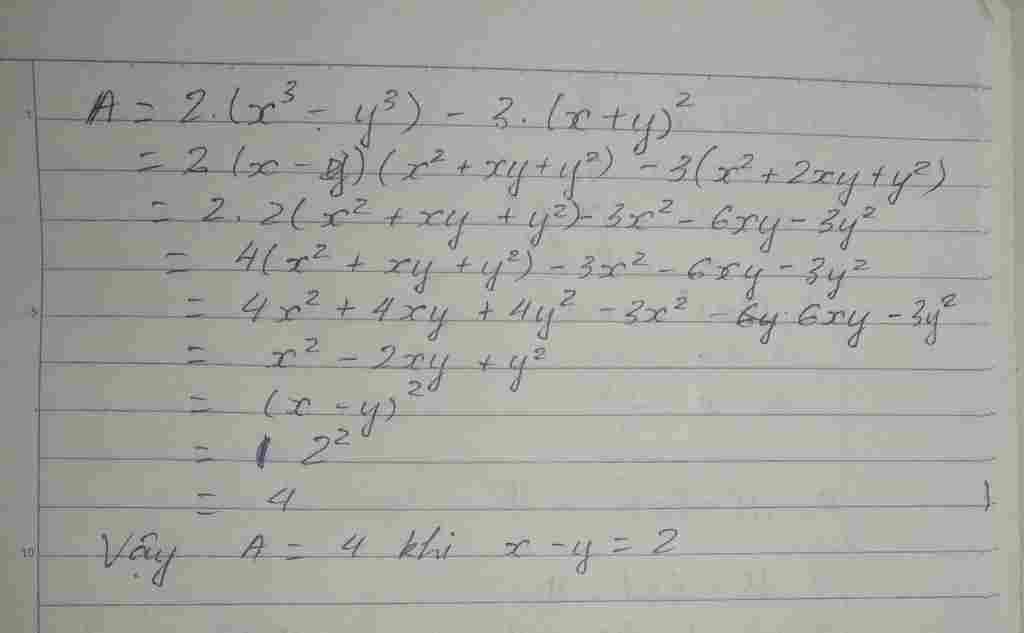 A = 2.(x³ - y³) - 3.(x+y)²
= 2 (x - y)(x² + xy + y²) - 3(x² + 2xy + y²)
= 2.2(x² + xy + y²) - 3x² - 6xy - 3y²
= 4(x² + xy + y²) - 3x² - 6xy - 3y²
= 4x² + 4xy + 4y² - 3x² - 6y 6xy - 3y²
= x² - 2xy + y²
= (x - y)²
= 2²
= 4
Vậy A = 4 khi x - y = 2
10